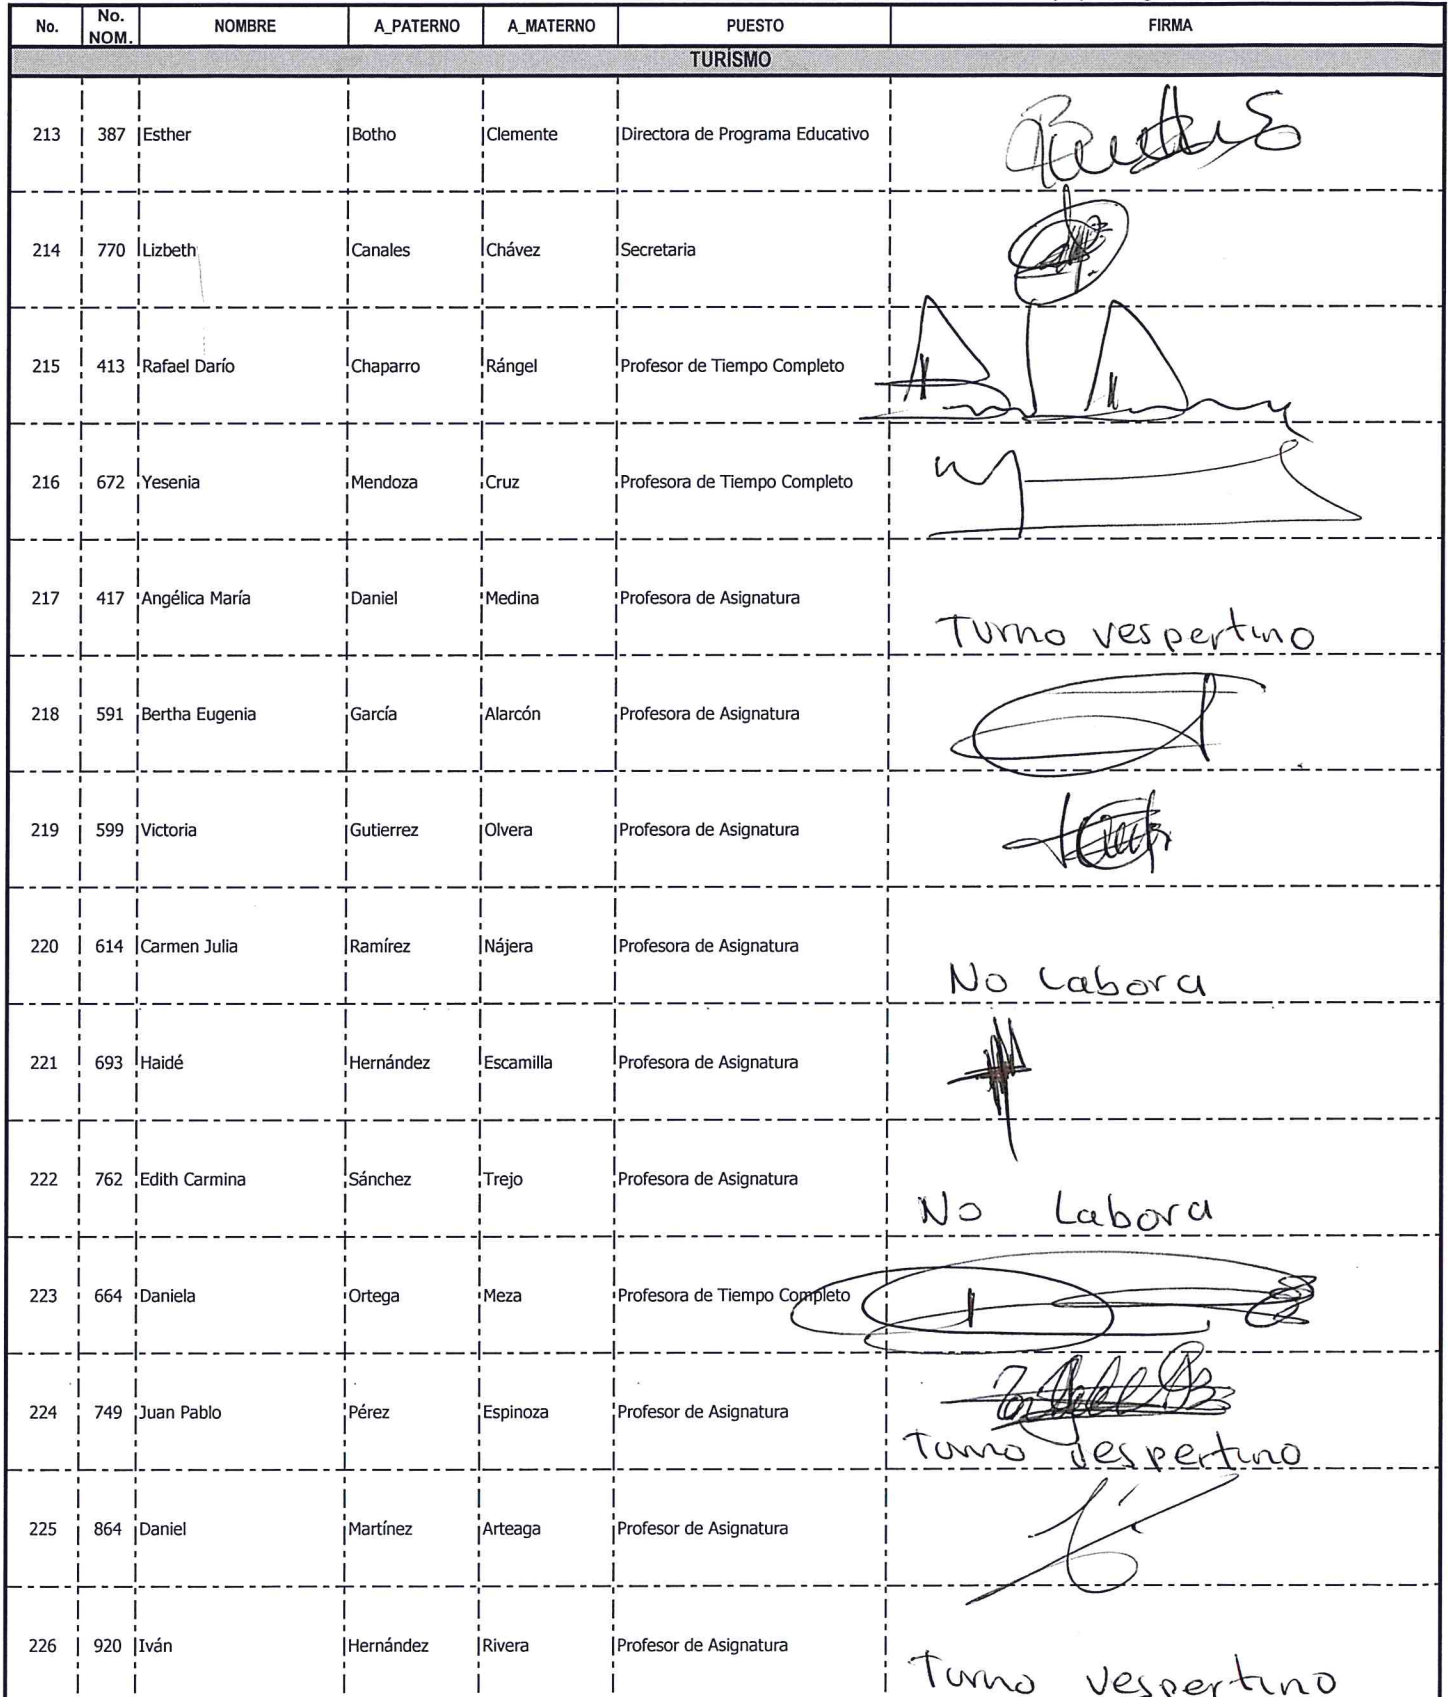 No. No. NOM. NOMBRE A_PATERNO A_MATERNO PUESTO FIRMA
TURÍSMO
213 387 Esther Botho Clemente Directora de Programa Educativo
214 770 Lizbeth Canales Chávez Secretaria
215 413 Rafael Darío Chaparro Rángel Profesor de Tiempo Completo
216 672 Yesenia Mendoza Cruz Profesora de Tiempo Completo
217 417 Angélica María Daniel Medina Profesora de Asignatura
Turno vespertino
218 591 Bertha Eugenia García Alarcón Profesora de Asignatura
219 599 Victoria Gutierrez Olvera Profesora de Asignatura
220 614 Carmen Julia Ramírez Nájera Profesora de Asignatura
No Labora
221 693 Haidé Hernández Escamilla Profesora de Asignatura
222 762 Edith Carmina Sánchez Trejo Profesora de Asignatura
No Labora
223 664 Daniela Ortega Meza Profesora de Tiempo Completo
224 749 Juan Pablo Pérez Espinoza Profesor de Asignatura
Turno vespertino
225 864 Daniel Martínez Arteaga Profesor de Asignatura
226 920 Iván Hernández Rivera Profesor de Asignatura
Turno vespertino